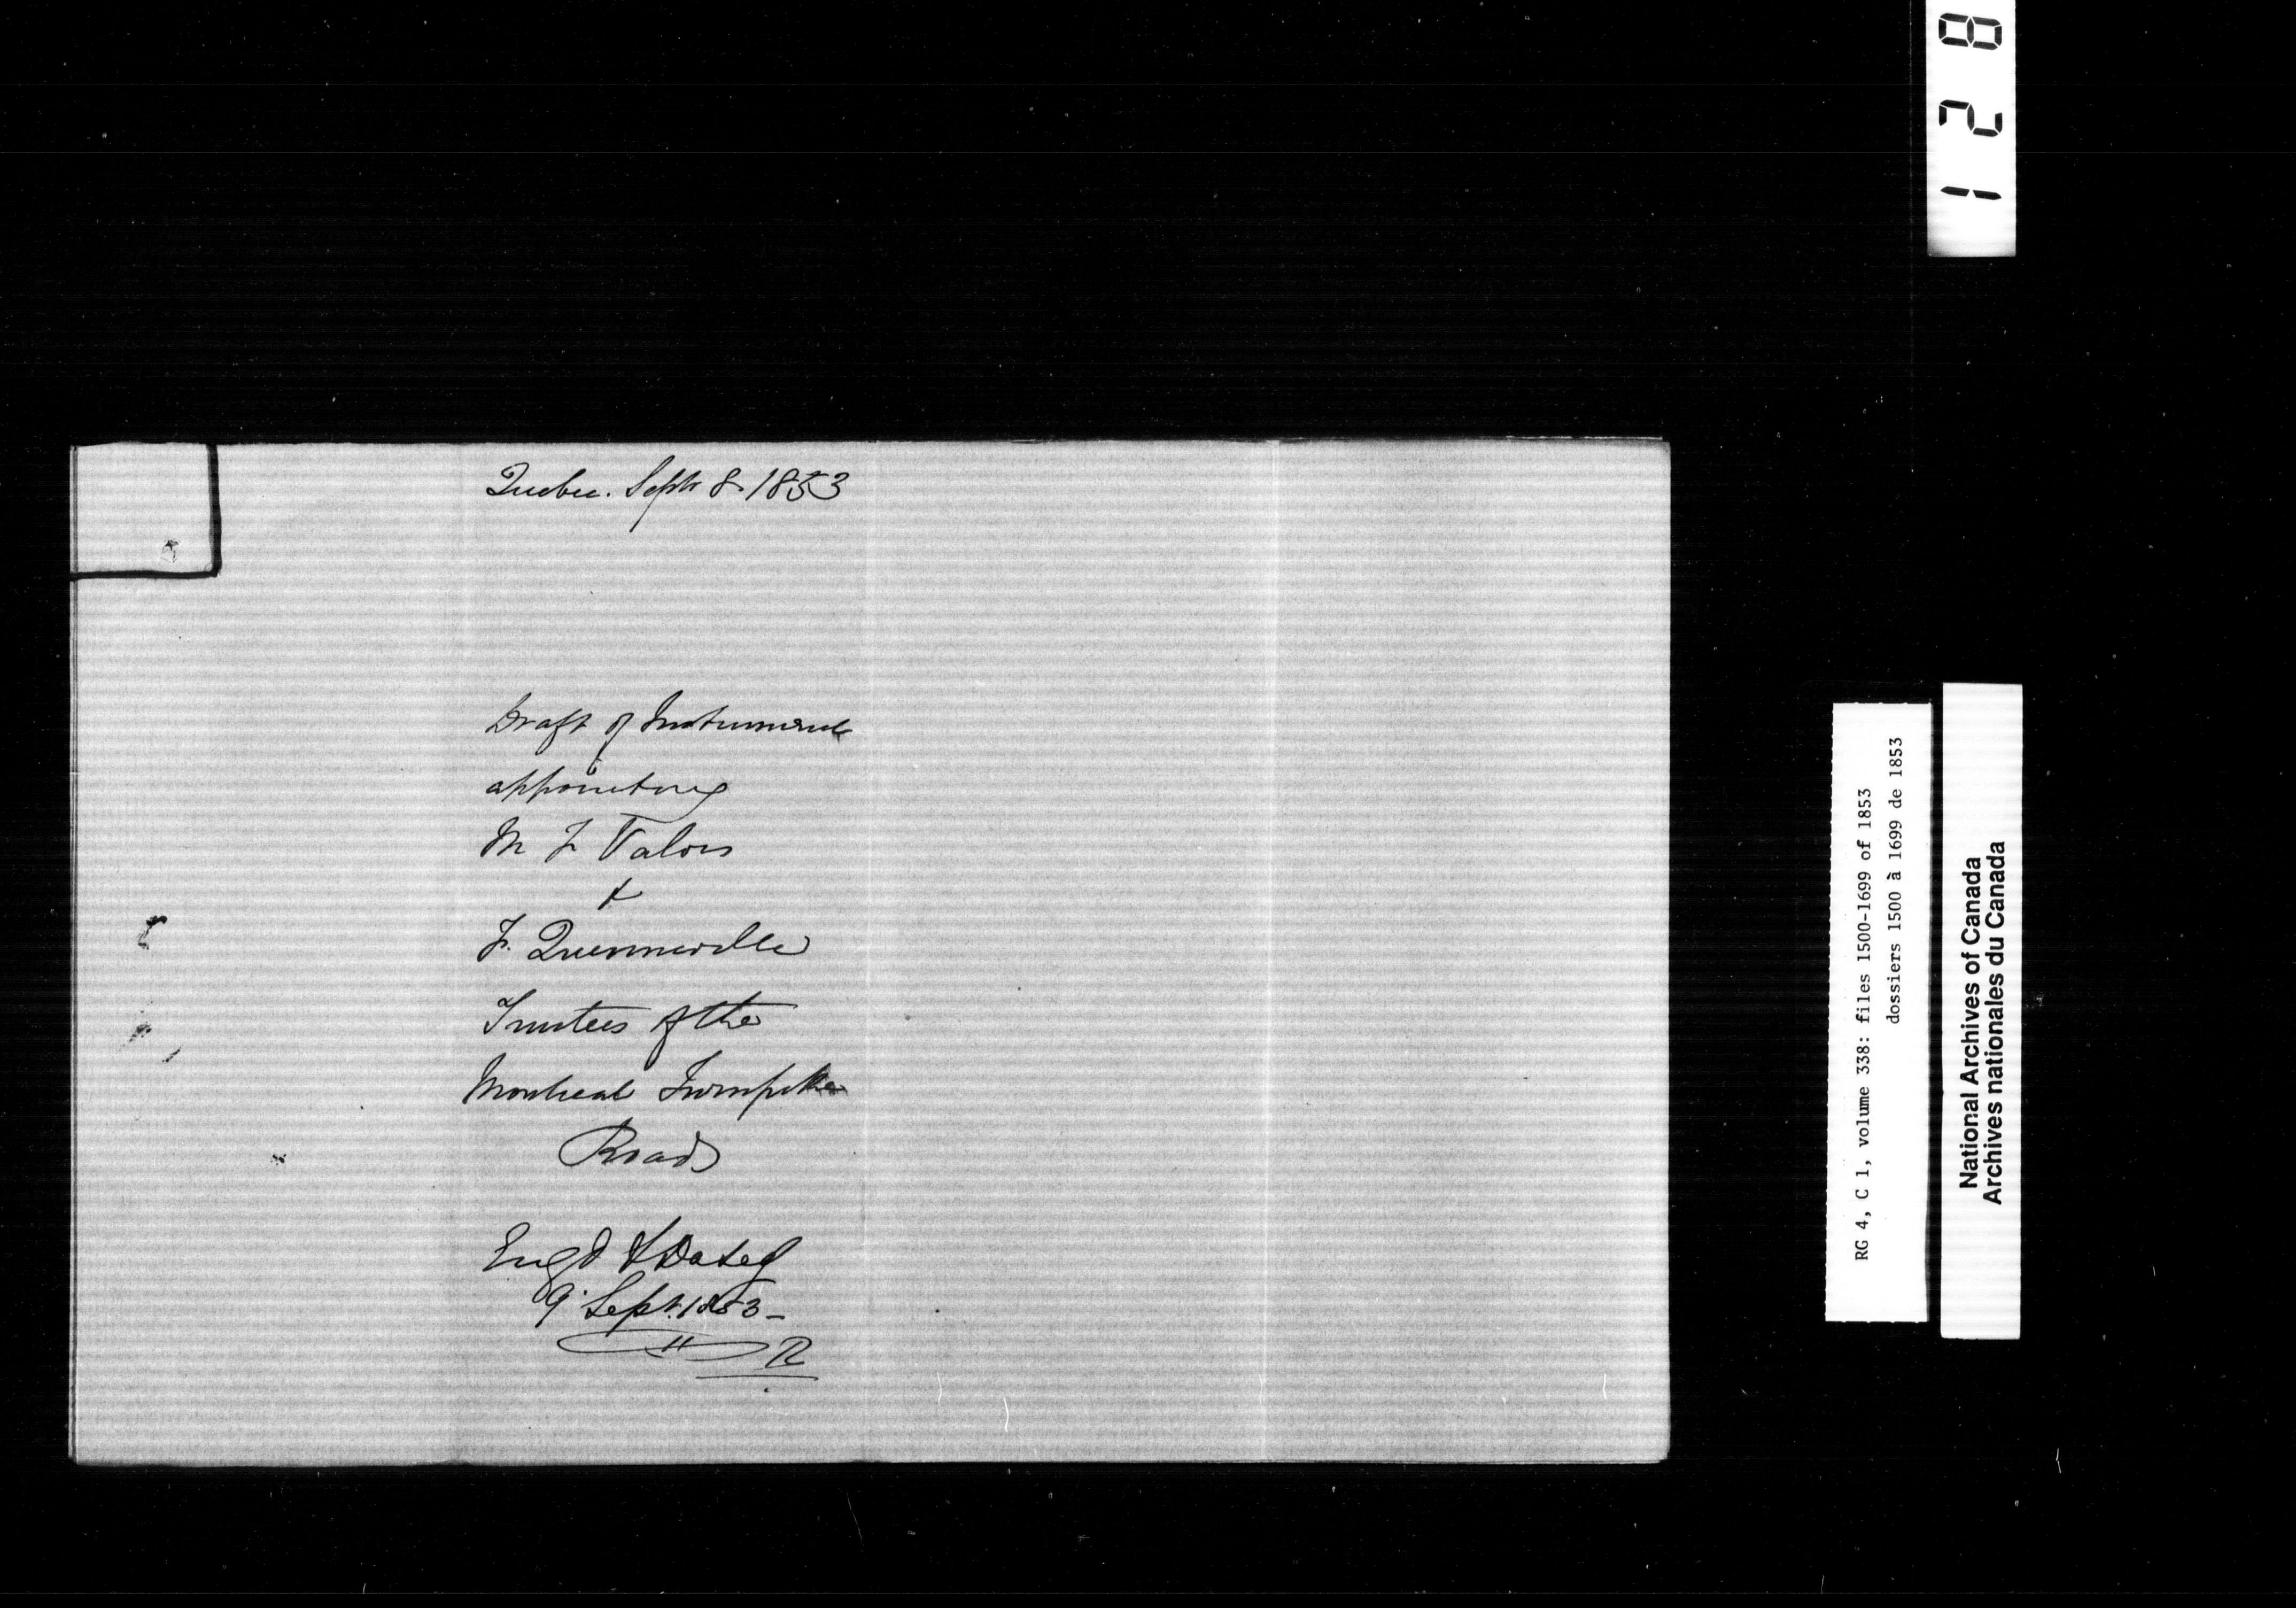 Quebec. Sept 8. 1853
Draft of Instrument
appointing
M F Valois
&
F. Quenneville
Trustees of the
Montreal Turnpike
Roads
Engd & Dated
9 Sept. 1853-
R
128
RG 4, C 1, volume 338: files 1500-1699 of 1853
dossiers 1500 à 1699 de 1853
National Archives of Canada
Archives nationales du Canada